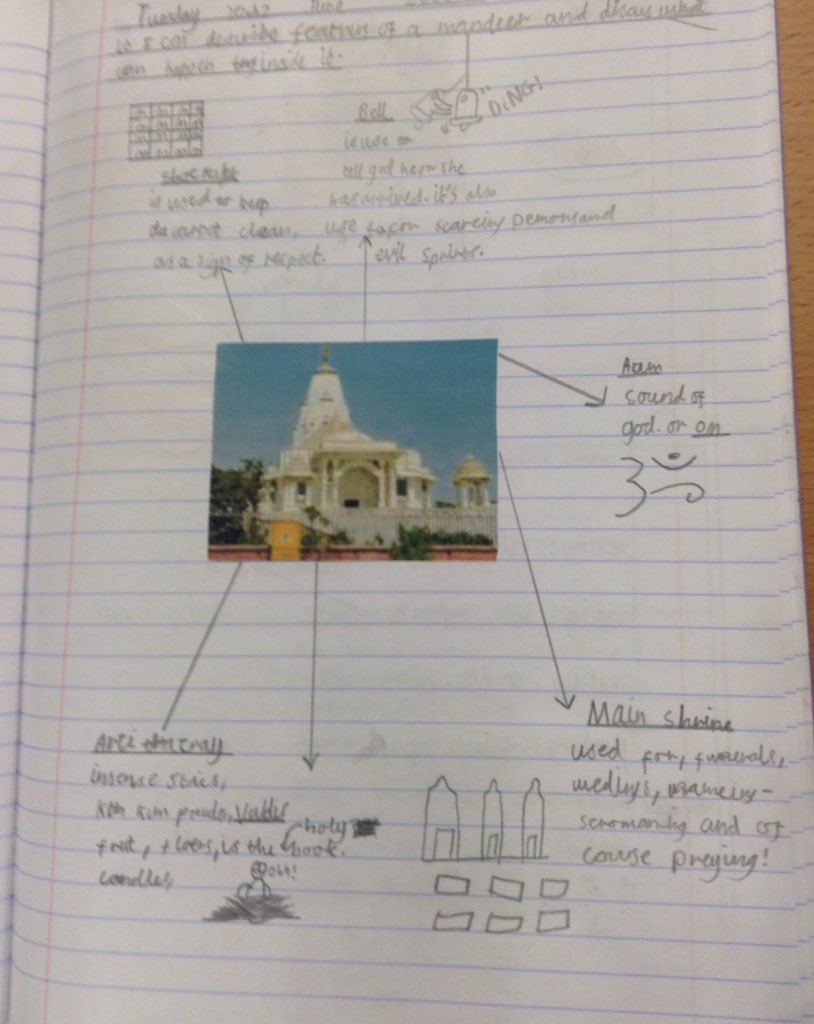 Tuesday June
Lo: I can describe features of a mandeer and discus what
can happen inside it:
Bell
DING!
is use or
tell god he or she
has arrived. it's also
use for scareiny Demons and
evil spirits.
shoe rake
is used or keep
the carpet clean,
as a sign of respect.
Aum
sound of
god. or om
Arti tray
insense stics,
kum kum powder, Veddis
fruit, flowers, is the holy
book.
candles
Ohh!
Main shrine
used for, funerals,
wedings, nameiny-
seromaning and of
course preying!